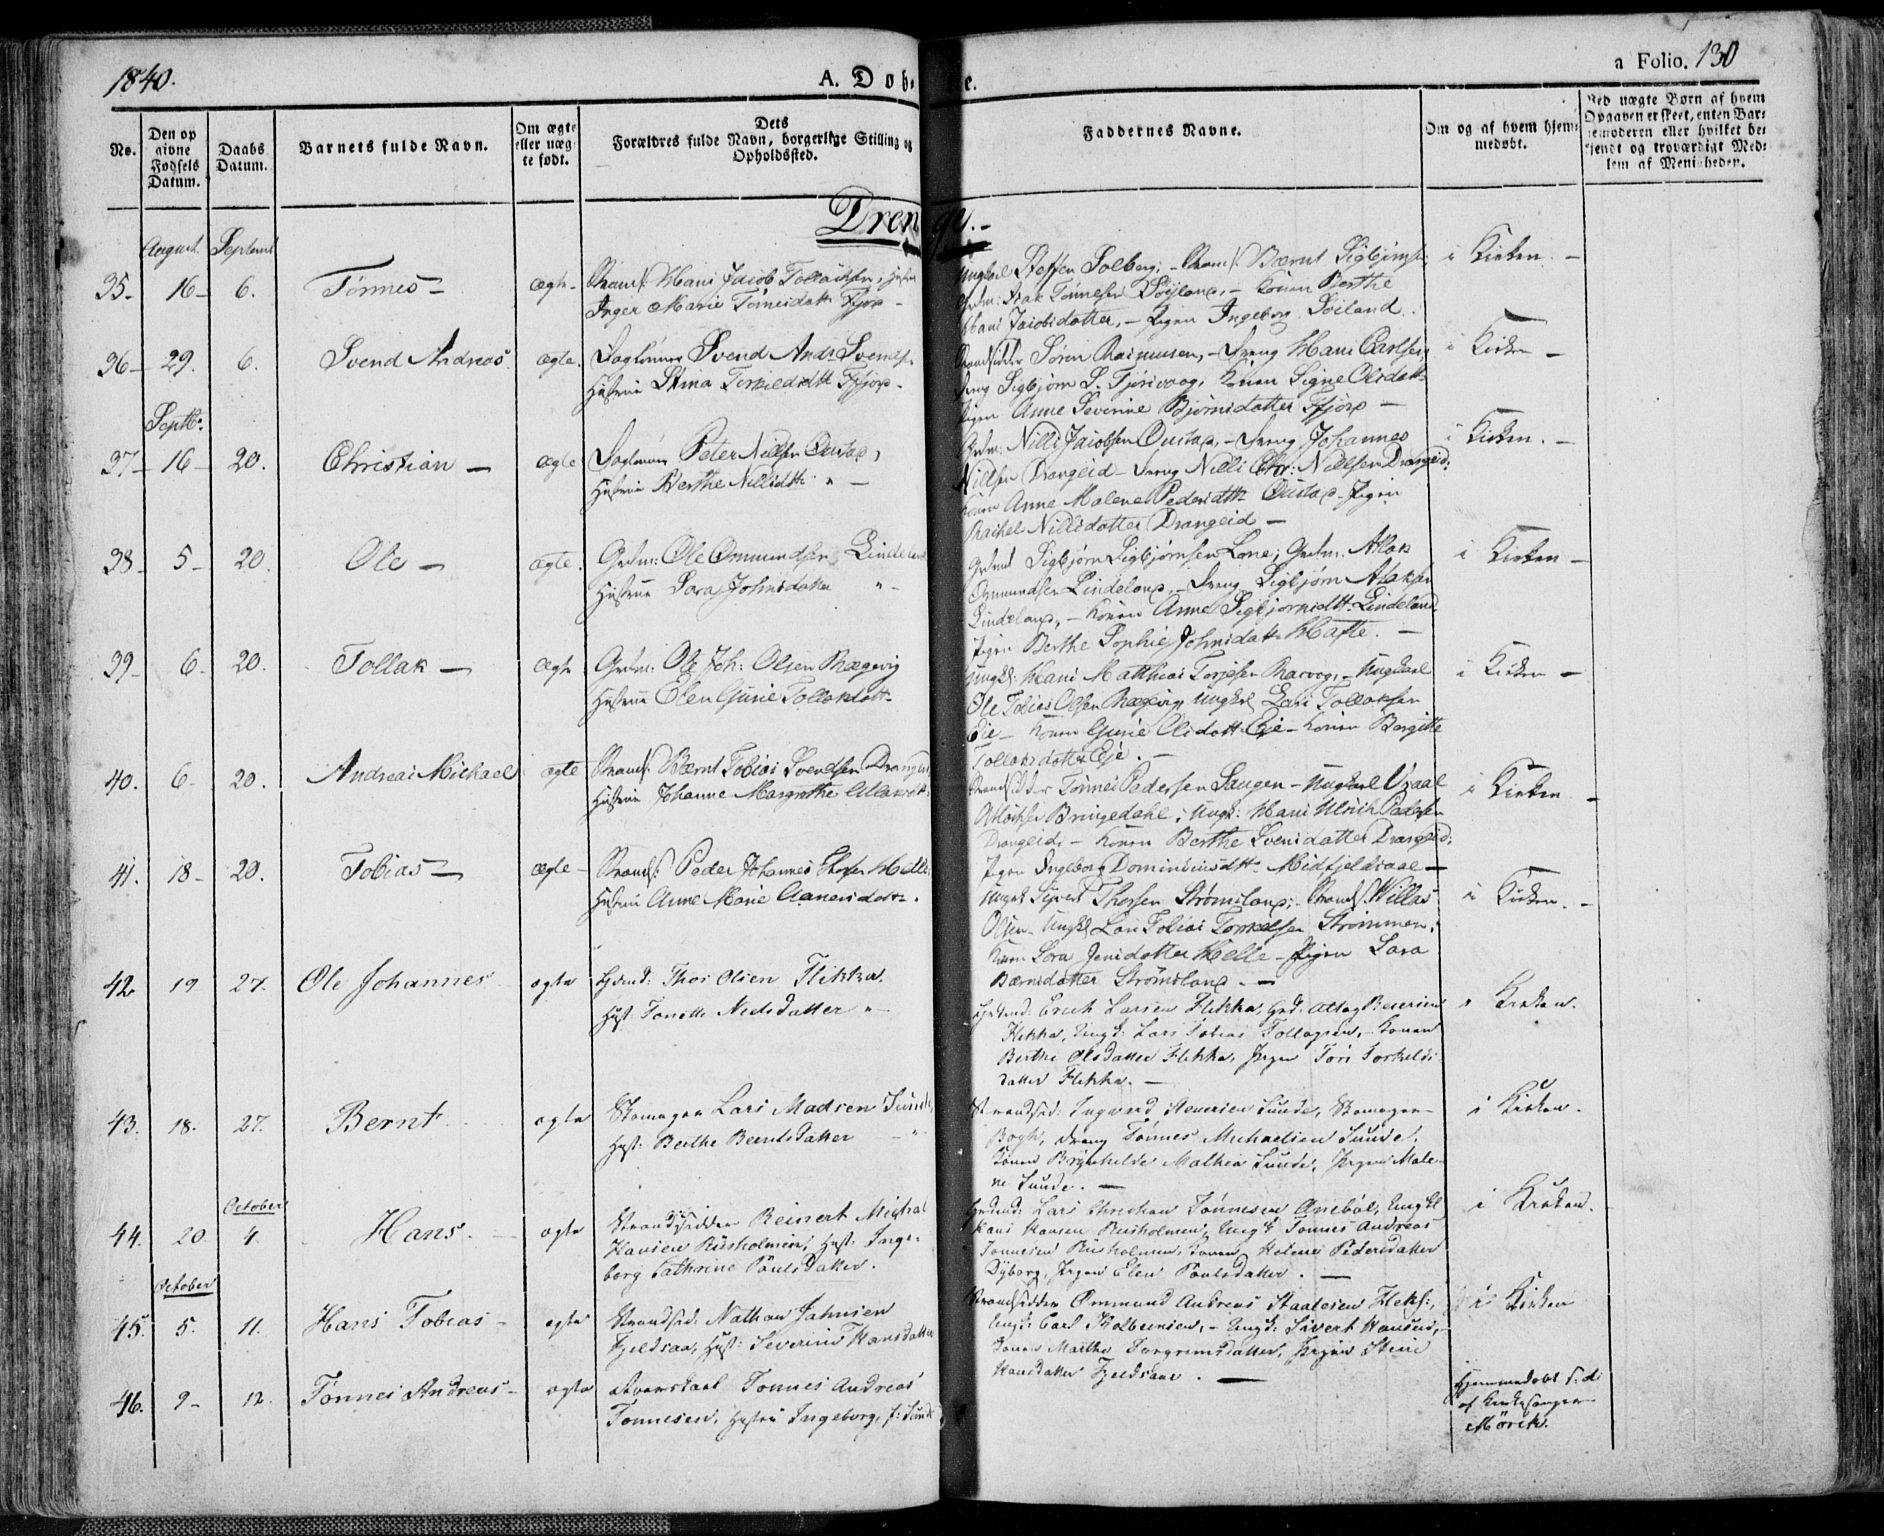 1840.
A. Døb
e.
a Folio. 130
No.
Den op
givne
Fødsels
Datum.
Daabs
Datum.
Barnets fulde Navn.
Om ægte
eller uæg
te født.
Dets
Forældres fulde Navn, borgerlige Stilling og
Opholdssted.
Faddernes Navne.
Om og af hvem hjem-
medøbt.
Ved uægte Børn af hvem
Opgaven er skeet, enten Bar-
nemoderen eller hvilket be-
kjendt og troværdigt Med-
lem af Menigheden.
Drenge.-
August. Septembr
35- 16- 6. Tønnes- ægte- Strands: Hans Jacob Tollaksen, Hustru
Inger Marie Tønnesdattr Fjore-
Ungkarl Steffen Solberg, - Strands: Bærnt Sigbjørns.
Grdm: Isak Tønnesen Søyland, - Konen Berthe
Hans Jacobsdatter, - Pigen Ingeborg Søiland.
i Kirken. -
36- 29. 6. Svend Andreas. ægte. Daglønner Svend Andr: Svends.
Hustrue Stina Terkeldsdtt Fjore-
Strandsidder Søren Rasmussen, - Dreng Hans Carlsen,
Dreng Sigbjørn S. Tjørsvaag, Konen Signe Olsdatt
Pigen Anne Severine Bjørnsdatter Fjore -
i Kirken -
Septbr.
37- 16- 20. Christian - ægte Daglønner Peter Nilsen Oustad,
Hustrue Berthe Nillsdtt. " -
Grdm: Nills Jacobsen Oustad, - Dreng Johannes
Nillsen Drangeid - Dreng Nills Chr: Nillsen Drangeid,
Konen Anne Malene Pedersdttr Oustad - Pigen
Rachel Nillsdatter Drangeid -
i Kirken. -
38- 5- 20. Ole - ægte. Grdm: Ole Ommundsen Lindeland
Hustrue Sara Johnsdatter " -
Grdmd Sigbjørn Sigbjørnsen Lone, Grdm: Atlak
Ommundsen Lindeland, - Dreng Sigbjørn Atlaksen
Lindeland, - Konen Anne Sigbjørnsdtt. Lindeland
Pigen Berthe Sophie Johnsdatt. Hafte. -
i Kirken -
39- 6. 20. Tollak - ægte Grdm: Ole Joh: Olsen Rægevig
Hustrue Elen Gurie Tollaksdatt
Ungk: Hans Matthias Torjesen Barvog, - Ungkarl
Ole Tobias Olsen Rægevig, Ungkl Lars Tollaksen
Eie - Konen Gurie Olsdatt Eje - Konen Bergitte
Tollaksdatter Eje. -
i Kirken -
40. 6. 20. Andreas Michael ægte Strands: Bærnt Tobias Svendsen Drangeid
Hustrue Johanne Margrethe Atlaksdtt
Strandsidder Tønnes Pedersen Haugen - Ungkarl Osaal
Atlaksen Bringedahl, Ungk: Hans Ulrich Pedersen
Drangeid, - Konen Berthe Svensdatter Drangeid,
Pigen Ingeborg Dominicusdtt. Midfjeldsaae -
i Kirken. -
41. 18- 20. Tobias - ægte - Strands: Peder Johannes Thorsen Helle
Hustrue Anne Marie Aanensdatter.
Ungkl Sivert Thorsen Strømsland, - Strands: Willas
Olsen - Ungkl Lars Tobias Torkelsen Strømmen,
Konen Sara Jensdatter Helle - Pigen Sara
Bærntsdatter Strømsland -
i Kirken. -
42 19 27. Ole Johannes ægte Grdmd: Thor Olsen Flikka.
Hust: Tonette Nielsdatter " -
Grdmd: Erich Larsen Flikka, Grd: Attag Reiersen
Flikka, Ungk: Lars Tobias Tollagsen, - Konen
Berthe Olsdatter Flikka, Pigen Tøri Torkelds-
datter Flikka. -
i Kirken.
43. 18. 27. Bernt ægte Skomager Lars Madsen Sunde,
Hust: Berthe Berntsdatter - "
Strandsid: Ingvard Stenersen Sunde, Skomager-
Bogh, Dreng Tønnes Michaelsen Sunde,
Konen Brynhilde Mathea Sunde, Pigen Male-
ne Sunde. -
i Kirken.
October
44. 20 4. Hans. - ægte Strandsidder Reinert Michal
Hansen Rusholmen, Hust: Inge-
borg Cathrine Poulsdatter.
Grdmd: Lars Christian Tønnesen Aneböl, Ungkl
Hans Hansen Rusholmen, Ungk Tønnes Andreas
Tønnesen Rusholmen, Konen Helene Pedersdatter
Dyborg, Pigen Elen Poulsdatter. -
i Kirken.
October
45. 5. 11. Hans Tobias - ægte Strandsid: Nathan Jahnsen
Fjeldsaa, Hust: Severine Hansdatter
Strandsidder Ommund Andreas Staalesen Flekf:,
Ungk: Carl Kolbensen, - Ungk: Sivert Hansen, -
Konen Marthe Torgrimsdatter, Pigen Stine
Hansdatter Fjeldsaae. -
i Kirken
46. 9- 12. Tønnes Andreas - ægte Qvarskarl Tønnes Andreas
Tønnesen, Hustru Ingeborg, f: Sunde
Hjemmedøbt s. d.
af Kirkesanger
Mörck.